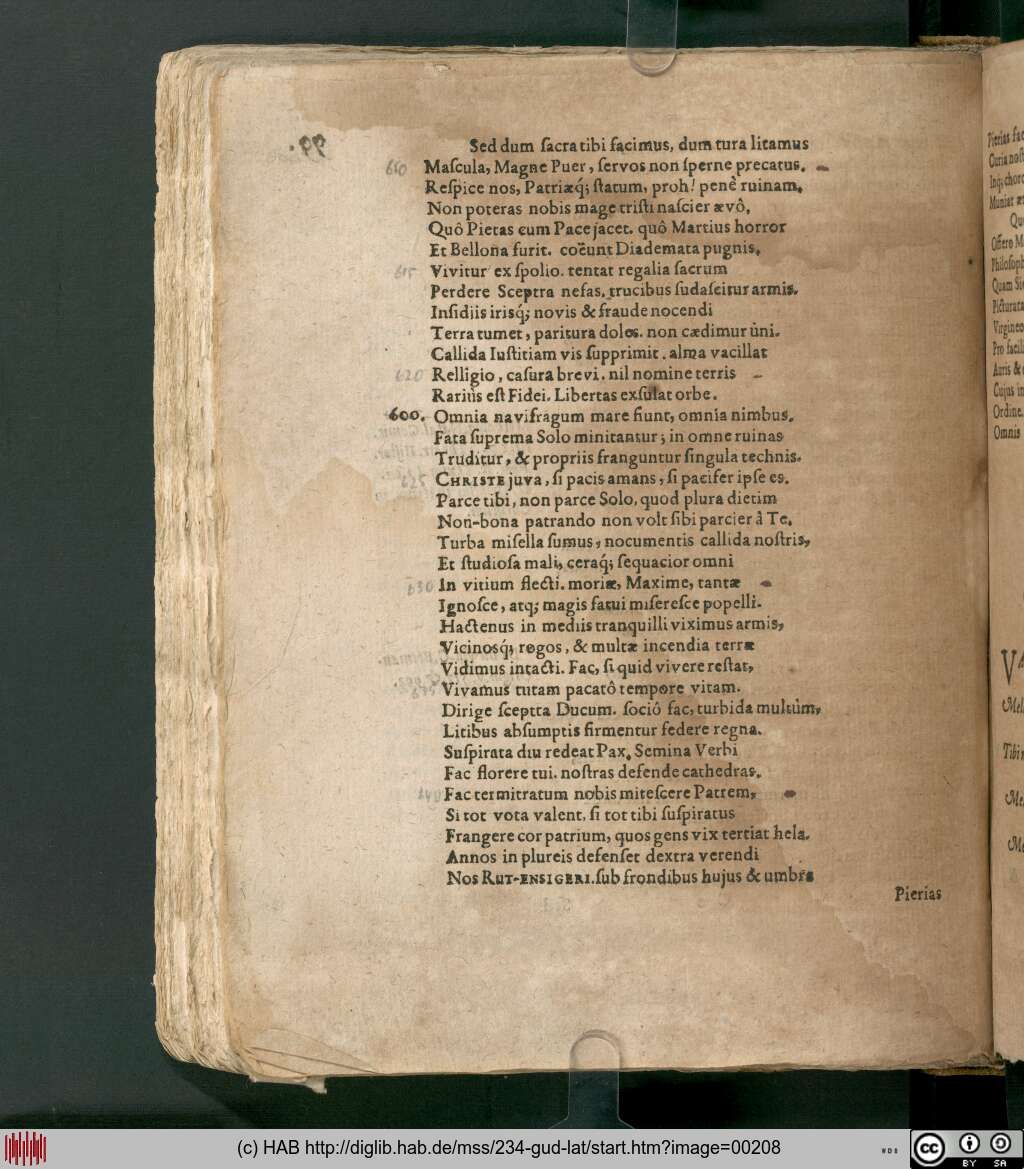 Sed dum ſacra tibi facimus, dum tura litamus
610 Maſcula, Magne Puer, ſervos non ſperne precatus.
Reſpice nos, Patriæq́; ſtatum, proh! penè ruinam.
Non poteras nobis mage triſti naſcier ævô,
Quô Pietas cum Pace jacet. quô Martius horror
Et Bellona furit. coëunt Diademata pugnis.
615 Vivitur ex ſpolio. tentat regalia ſacrum
Perdere Sceptra nefas. trucibus ſudaſcitur armis.
Inſidiis irisq́; novis & fraude nocendi
Terra tumet, paritura dolos. non cædimur ùni.
Callida Iuſtitiam vis ſupprimit. alma vacillat
620 Relligio, caſura brevi. nil nomine terris
Rariùs eſt Fidei. Libertas exſulat orbe.
600. Omnia navifragum mare fiunt, omnia nimbus.
Fata ſuprema Solo minitantur; in omne ruinas
Truditur, & propriis franguntur ſingula technis.
625 CHRISTE juva, ſi pacis amans, ſi pacifer ipſe es.
Parce tibi, non parce Solo, quod plura dietim
Non-bona patrando non volt ſibi parcier â Te.
Turba miſella ſumus, nocumentis callida noſtris,
Et ſtudioſa mali, ceraq́; ſequacior omni
630 In vitium flecti. moriæ, Maxime, tantæ
Ignoſce, atq; magis fatui miſereſce popelli.
Hactenus in mediis tranquilli viximus armis,
Vicinosq́; rogos, & multæ incendia terræ
Vidimus intacti. Fac, ſi quid vivere reſtat,
Vivamus tutam pacatô tempore vitam.
Dirige ſceptta Ducum. ſociô fac, turbida multùm,
Litibus abſumptis firmentur federe regna.
Suſpirata diu redeat Pax. Semina Verbi
Fac florere tui. noſtras defende cathedras.
Fac termitratum nobis miteſcere Patrem,
Si tot vota valent, ſi tot tibi ſuſpiratus
Frangere cor patrium, quos gens vix tertiat hela.
Annos in plureis defenſet dextra verendi
Nos RUT-ENSIGERI. ſub frondibus hujus & umbra
Pierias
Pierias
Curia
Inq; 
Muniat
Qu
Offero M
Philoſoph
Quam
Picturata
Virgineo
Pro facil
Auris &
Cujus in
Ordine.
Omnis
Mel
Tibi
Me
Me
(c) HAB http://diglib.hab.de/mss/234-gud-lat/start.htm?image=00208
cc BY SA